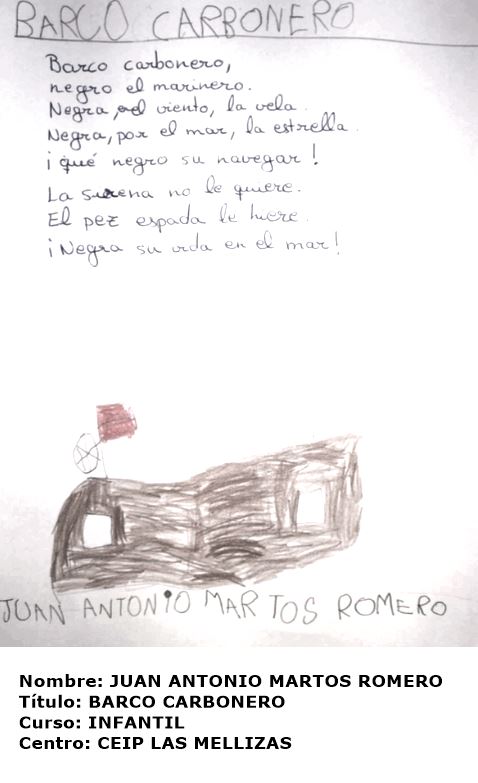 BARCO CARBONERO
Barco carbonero,
negro el marinero.
Negra, en el viento, la vela.
Negra, por el mar, la estrella.
¡qué negro su navegar!
La sirena no le quiere.
El pez espada le hiere.
¡Negra su vida en el mar!
JUAN ANTONIO MARTOS ROMERO
Nombre: JUAN ANTONIO MARTOS ROMERO
Título: BARCO CARBONERO
Curso: INFANTIL
Centro: CEIP LAS MELLIZAS